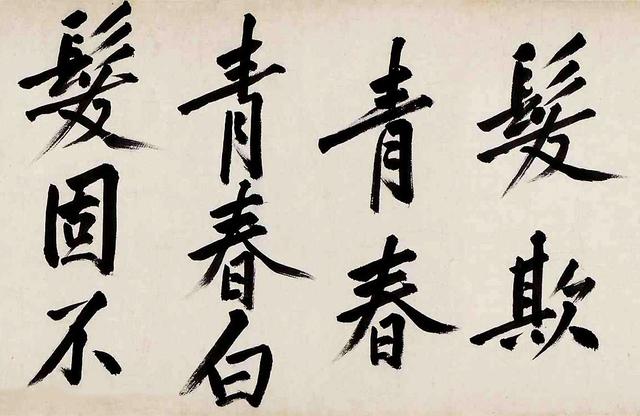 髮欺
青春
青春白
髮固不